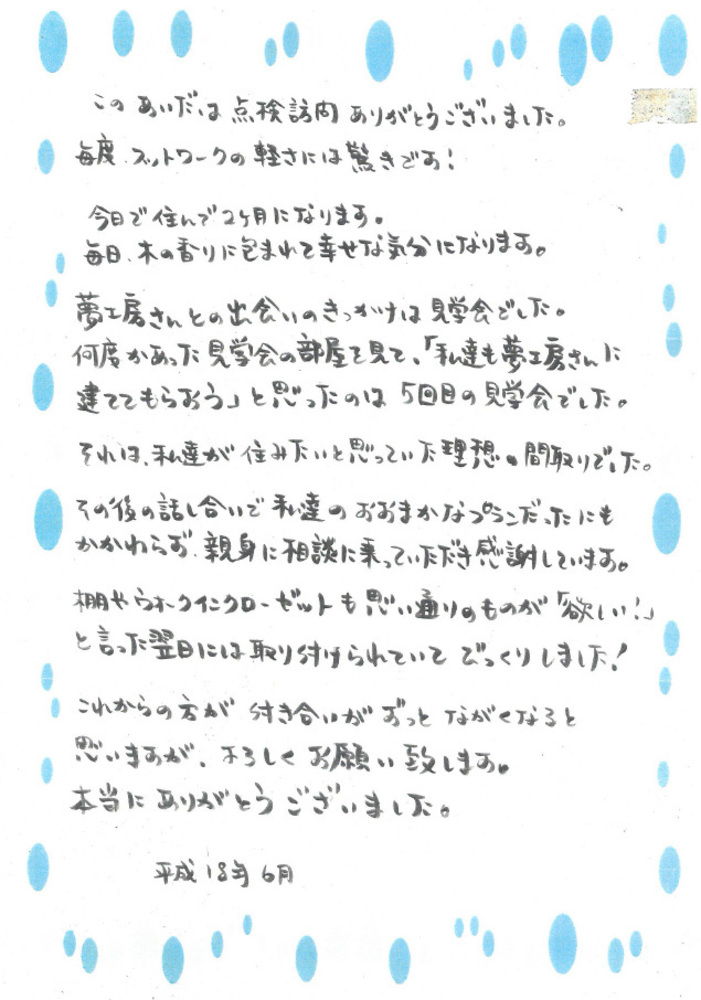 このあいだは点検訪内ありがとうございました。
毎度、フットワークの軽さには驚きです!
今日で住んで2ヶ月になります。
毎日、木の香りに包まれて幸せな気分になります。
夢工房さんとの出会いのきっかけは見学会でした。
何度かあった見学会の部屋を見て、「私達も夢工房さんに
建ててもらおう」と思ったのは5回目の見学会でした。
それは、私達が住みたいと思っていた理想の間取りでした。
その後の話し合いで私達のおおまかなプランだったにも
かかわらず、親身に相談に乗っていただき感謝しています。
棚やウォークインクローゼットも思い通りのものが「欲しい!」
と言った翌日には取り付けられていてびっくりしました!
これからの方が付き合いがずっとながくなると
思いますが、よろしくお願い致します。
本当にありがとうございました。
平成18年6月